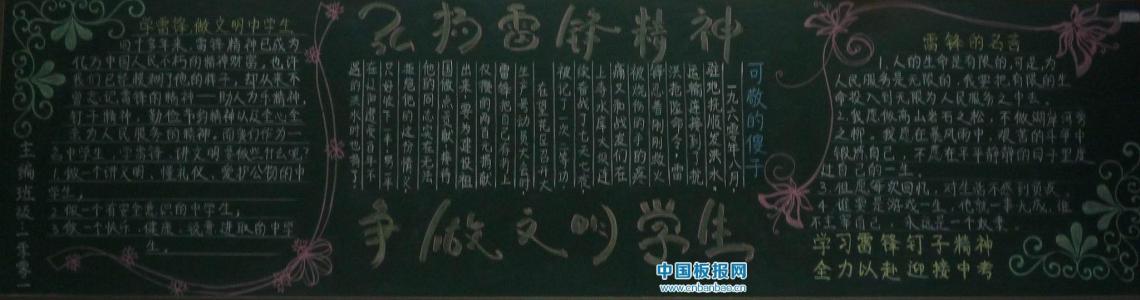 弘扬雷锋精神
争做文明学生
学雷锋,做文明中学生
四十多年来,雷锋精神已成为
化为中国人民不朽的精神财富。也许
我们已经模糊了他的样子,却从来不
曾忘记雷锋的精神——助人为乐精神,
钉子精神,勤俭节约精神以及全心全
意为人民服务的精神。而我们作为一
名中学生,学雷锋,讲文明要做些什么呢?
1.做一个讲文明、懂礼仪、爱护公物的中
学生,
2.做一个有安全意识的中学生,
3.做一个快乐、健康、锐意进取的中学
生。
主编班级
可敬的傻子
一九六零年八月,
驻地抚顺发洪水,
运输连接到了抗
洪抢险命令,雷
锋忍着刚刚救火
被烧伤的手的疼
痛又和战友们在
上寺水库大坝连
续奋战了七天七夜,
被记了一次二等功。
在望花区召开大
生产号召动员大会时,
雷锋把自己存折上
仅攒的两百元捐献
出来,要为建设祖
国做点贡献,接待
他的同志实在无法
拒绝他的这份情义
只好收下一半,另一半
在辽阳遭受百年不
遇的洪水时也捐了。
雷锋的名言
1.人的生命是有限的,可是,为
人民服务是无限的,我要把有限的生
命投入到无限为人民服务之中去。
2.我愿做高山岩石之松,不做湖岸河旁
之柳。我愿在暴风雨中,艰苦的斗争中
锻炼自己,不愿在平平静静的日子里度
过自己的一生。
3.但愿每次回忆,对生活不感到负疚。
4.谁要是游戏一生,他就一事无成,谁
不主宰自己,永远是一个奴隶。
学习雷锋钉子精神
全力以赴迎接中考
中国板报网
www.cnbanbao.cn